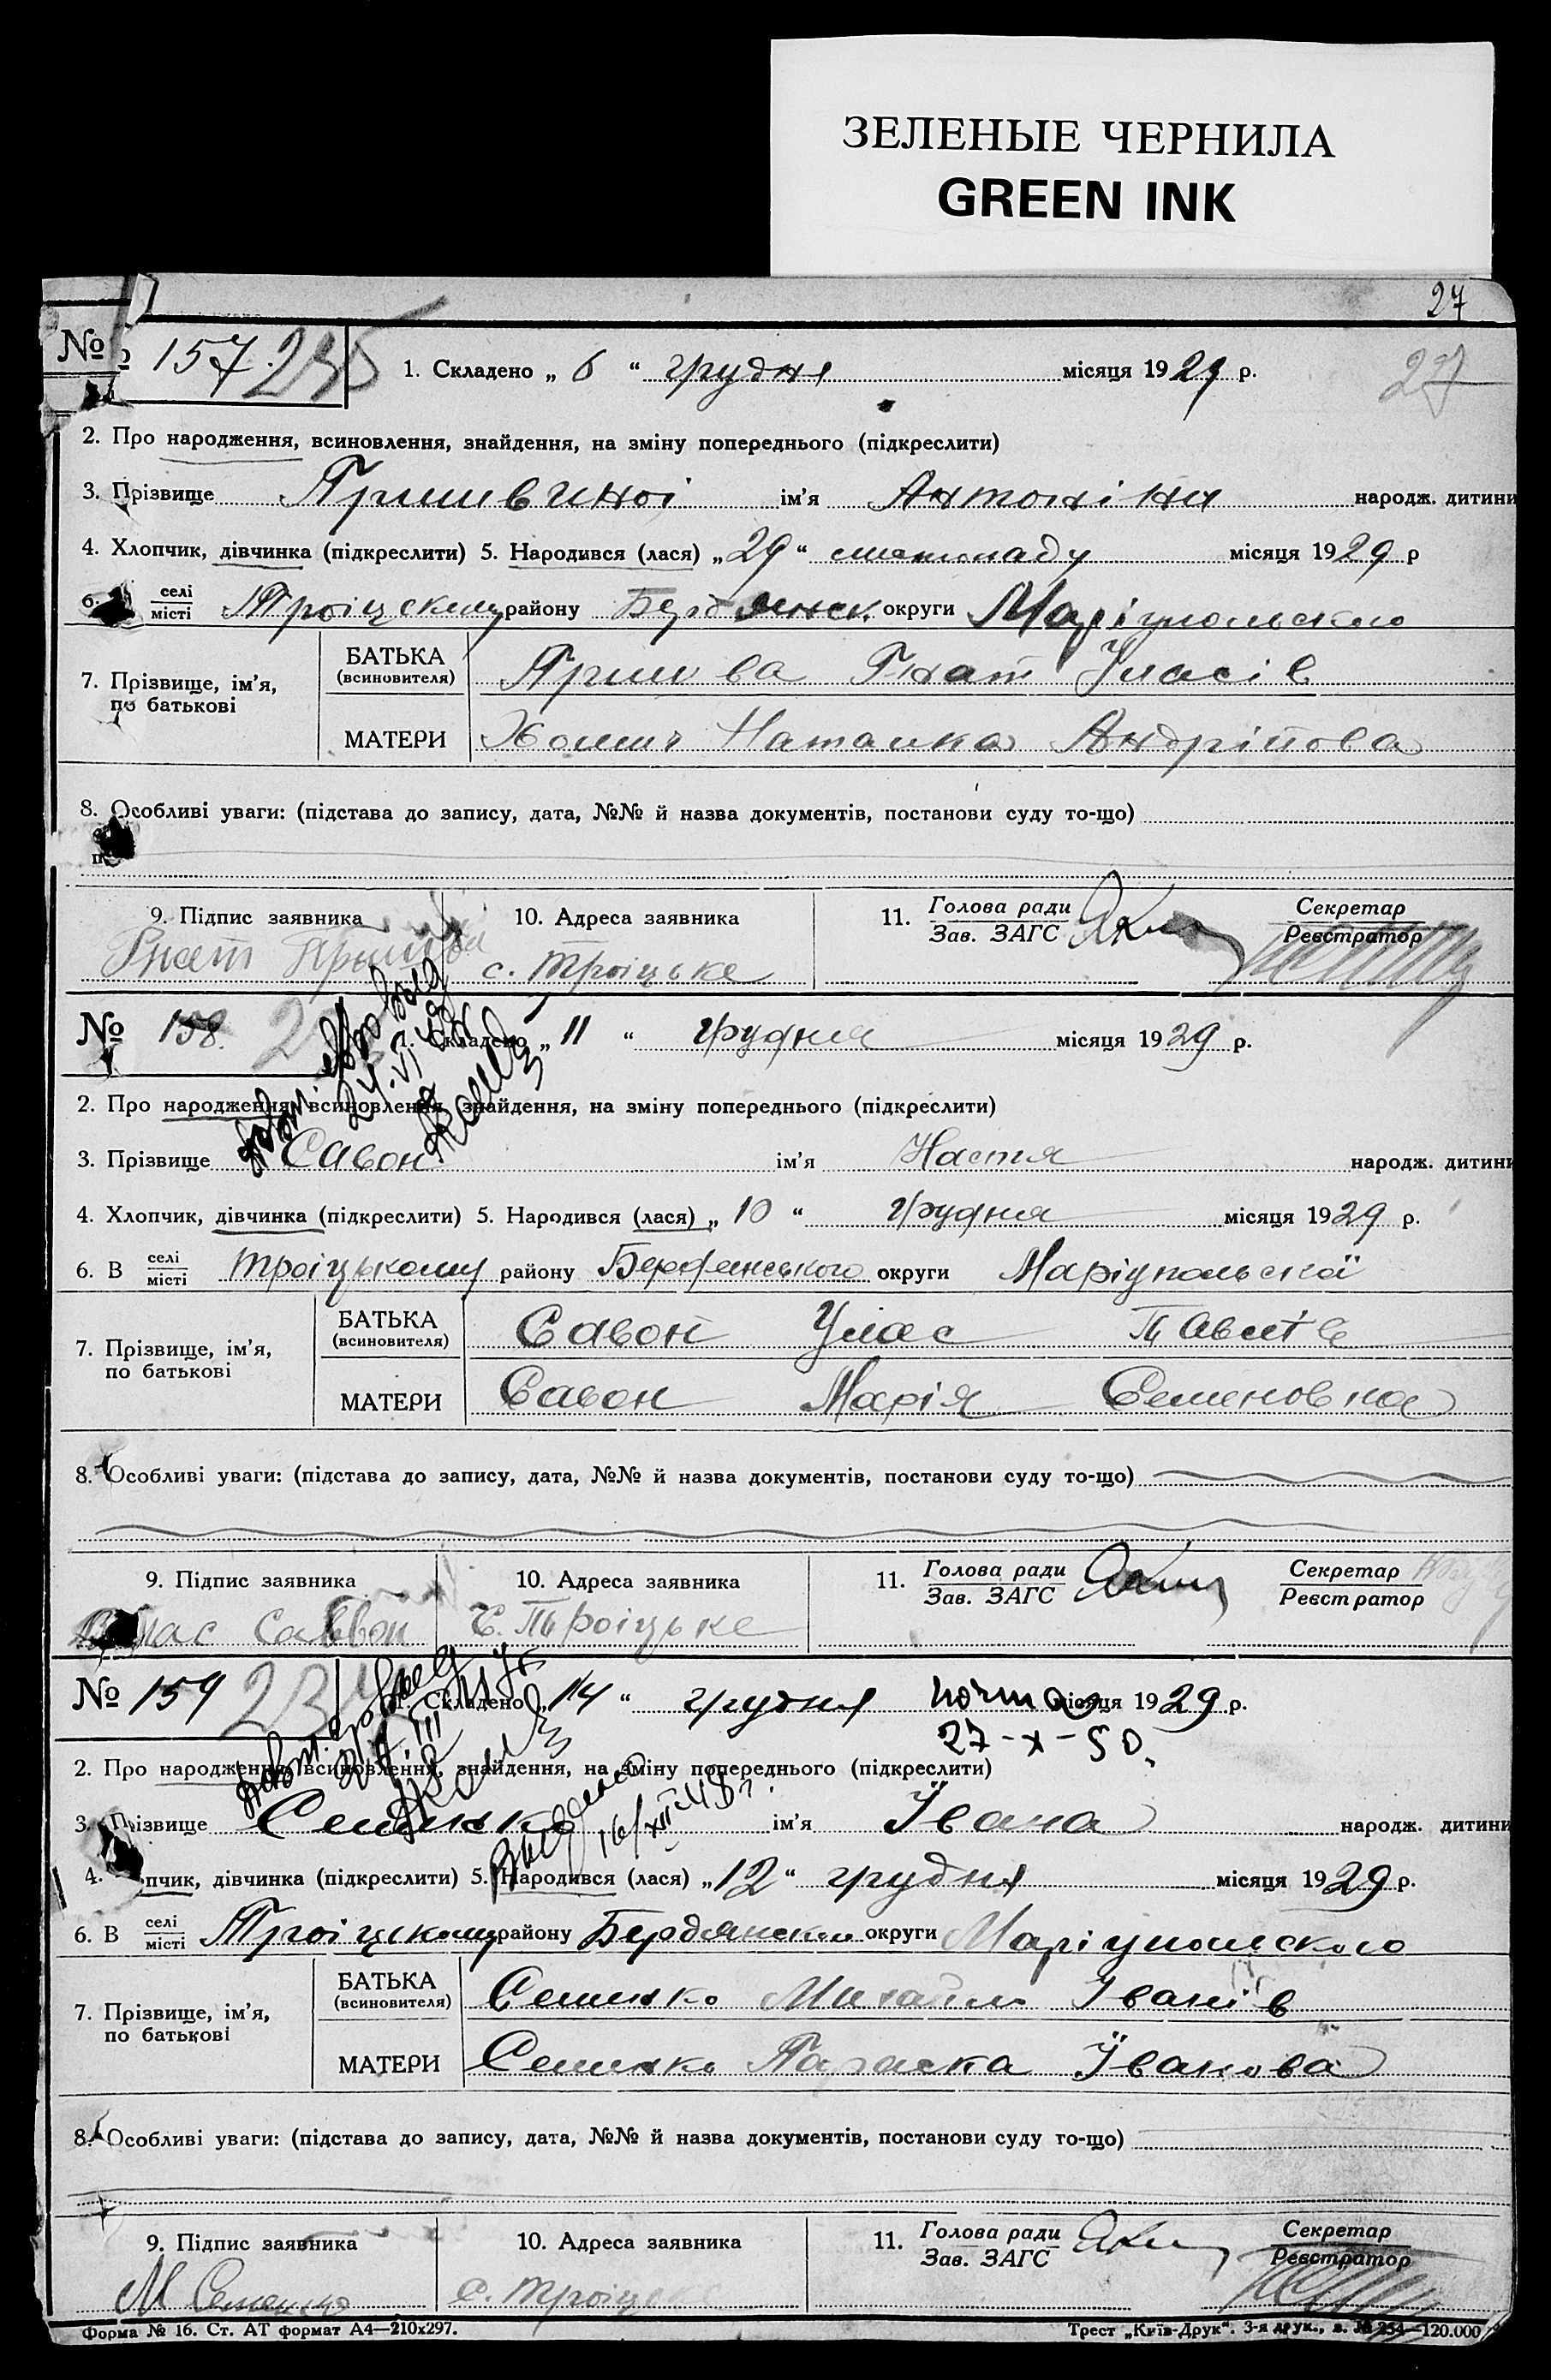 ЗЕЛЕНЫЕ ЧЕРНИЛА
GREEN INK
27
№ 157. 1. Складено „ 6 “ грудня місяця 1929 р. 27
2. Про народження, всиновлення, знайдення, на зміну попереднього (підкреслити)
3. Прізвище ім'я Антоніни народж. дитини
4. Хлопчик, дівчинка (підкреслити) 5. Народився (лася) „ 29 “ листопаду місяця 1929 р
6. селі місті Троіцскому району Бердянськ. округи Маріупольского
7. Прізвище, ім'я, по батькові
БАТЬКА (всиновителя) Гнат Уласів
МАТЕРИ Наталка Андрійова
8. Особливі уваги: (підстава до запису, дата, №№ й назва документів, постанови суду то-що)
9. Підпис заявника 10. Адреса заявника 11. Голова ради Зав. ЗАГС Секретар Реєстратор
Гнат с. Троіцьке
№ 158. 1. Складено „ 11 “ грудня місяця 1929 р.
2. Про народження, всиновлення, знайдення, на зміну попереднього (підкреслити)
3. Прізвище Савон ім'я Настя народж. дитини
4. Хлопчик, дівчинка (підкреслити) 5. Народився (лася) „ 10 “ грудня місяця 1929 р.
6. В селі місті Троіцькому району Бердянського округи Маріупольскої
7. Прізвище, ім'я, по батькові
БАТЬКА (всиновителя) Савон Улас Павлів
МАТЕРИ Савон Марія Семеновна
8. Особливі уваги: (підстава до запису, дата, №№ й назва документів, постанови суду то-що)
9. Підпис заявника 10. Адреса заявника 11. Голова ради Зав. ЗАГС Секретар Реєстратор
Саввон С. Троіцьке
№ 159 1. Складено „ 14 “ грудня місяця 1929 р.
27-X-50.
2. Про народження, всиновлення, знайдення, на зміну попереднього (підкреслити)
3. Прізвище ім'я Івана народж. дитини
16/XII-48 г.
4. Хлопчик, дівчинка (підкреслити) 5. Народився (лася) „ 12 “ грудня місяця 1929 р.
6. В селі місті Троіцкому району Бердянского округи Маріупольского
7. Прізвище, ім'я, по батькові
БАТЬКА (всиновителя) Михайло Іванів
МАТЕРИ Параска Іванова
8. Особливі уваги: (підстава до запису, дата, №№ й назва документів, постанови суду то-що)
9. Підпис заявника 10. Адреса заявника 11. Голова ради Зав. ЗАГС Секретар Реєстратор
М с.
Форма № 16. Ст. АТ формат А4—210х297. Трест „Київ-Друк“. 3-я друк., з. № 254—120.000